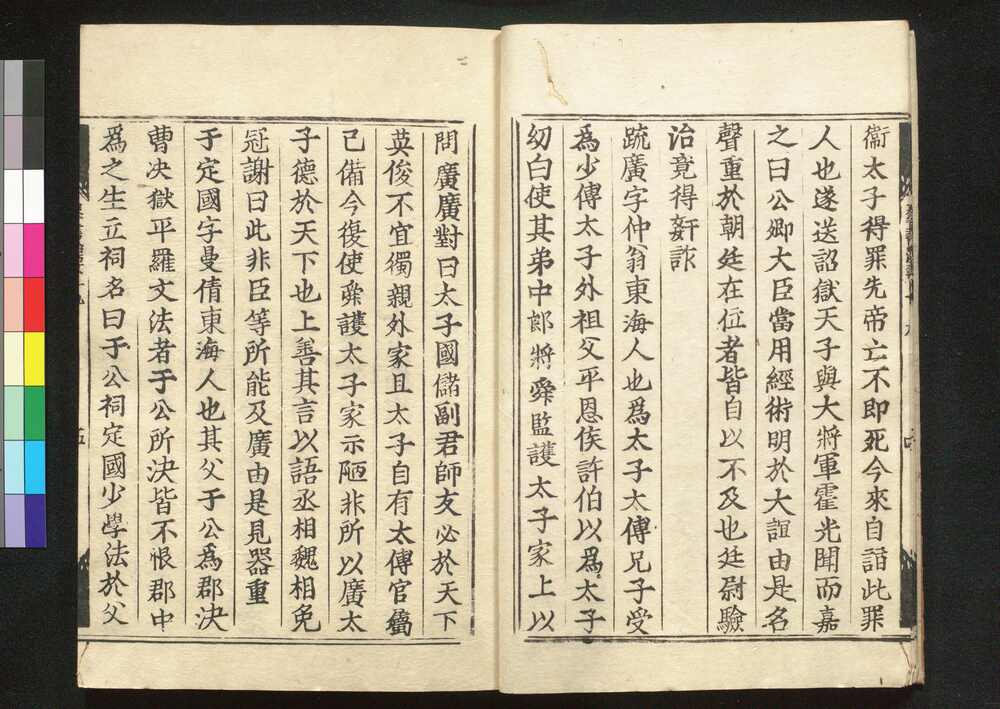 衞太子得罪先帝亡不即死今來自詣此罪
人也遂送詔獄天子與大將軍霍光聞而嘉
之曰公卿大臣當用經術明於大誼由是名
聲重於朝廷在位者皆自以不及也廷尉驗
治竟得姧詐
疏廣字仲翁東海人也爲太子太傅兄子受
爲少傅太子外祖父平恩侯許伯以爲太子
幼白使其弟中郎將舜監護太子家上以
問廣廣對曰太子國儲副君師友必於天下
英俊不宜獨親外家且太子自有太傅官屬
已備今復使舜護太子家示陋非所以廣太
子德於天下也上善其言以語丞相魏相免
冠謝曰此非臣等所能及廣由是見器重
于定國字曼倩東海人也其父于公爲郡決
曹决獄平羅文法者于公所決皆不恨郡中
爲之生立祠名曰于公祠定國少學法於父